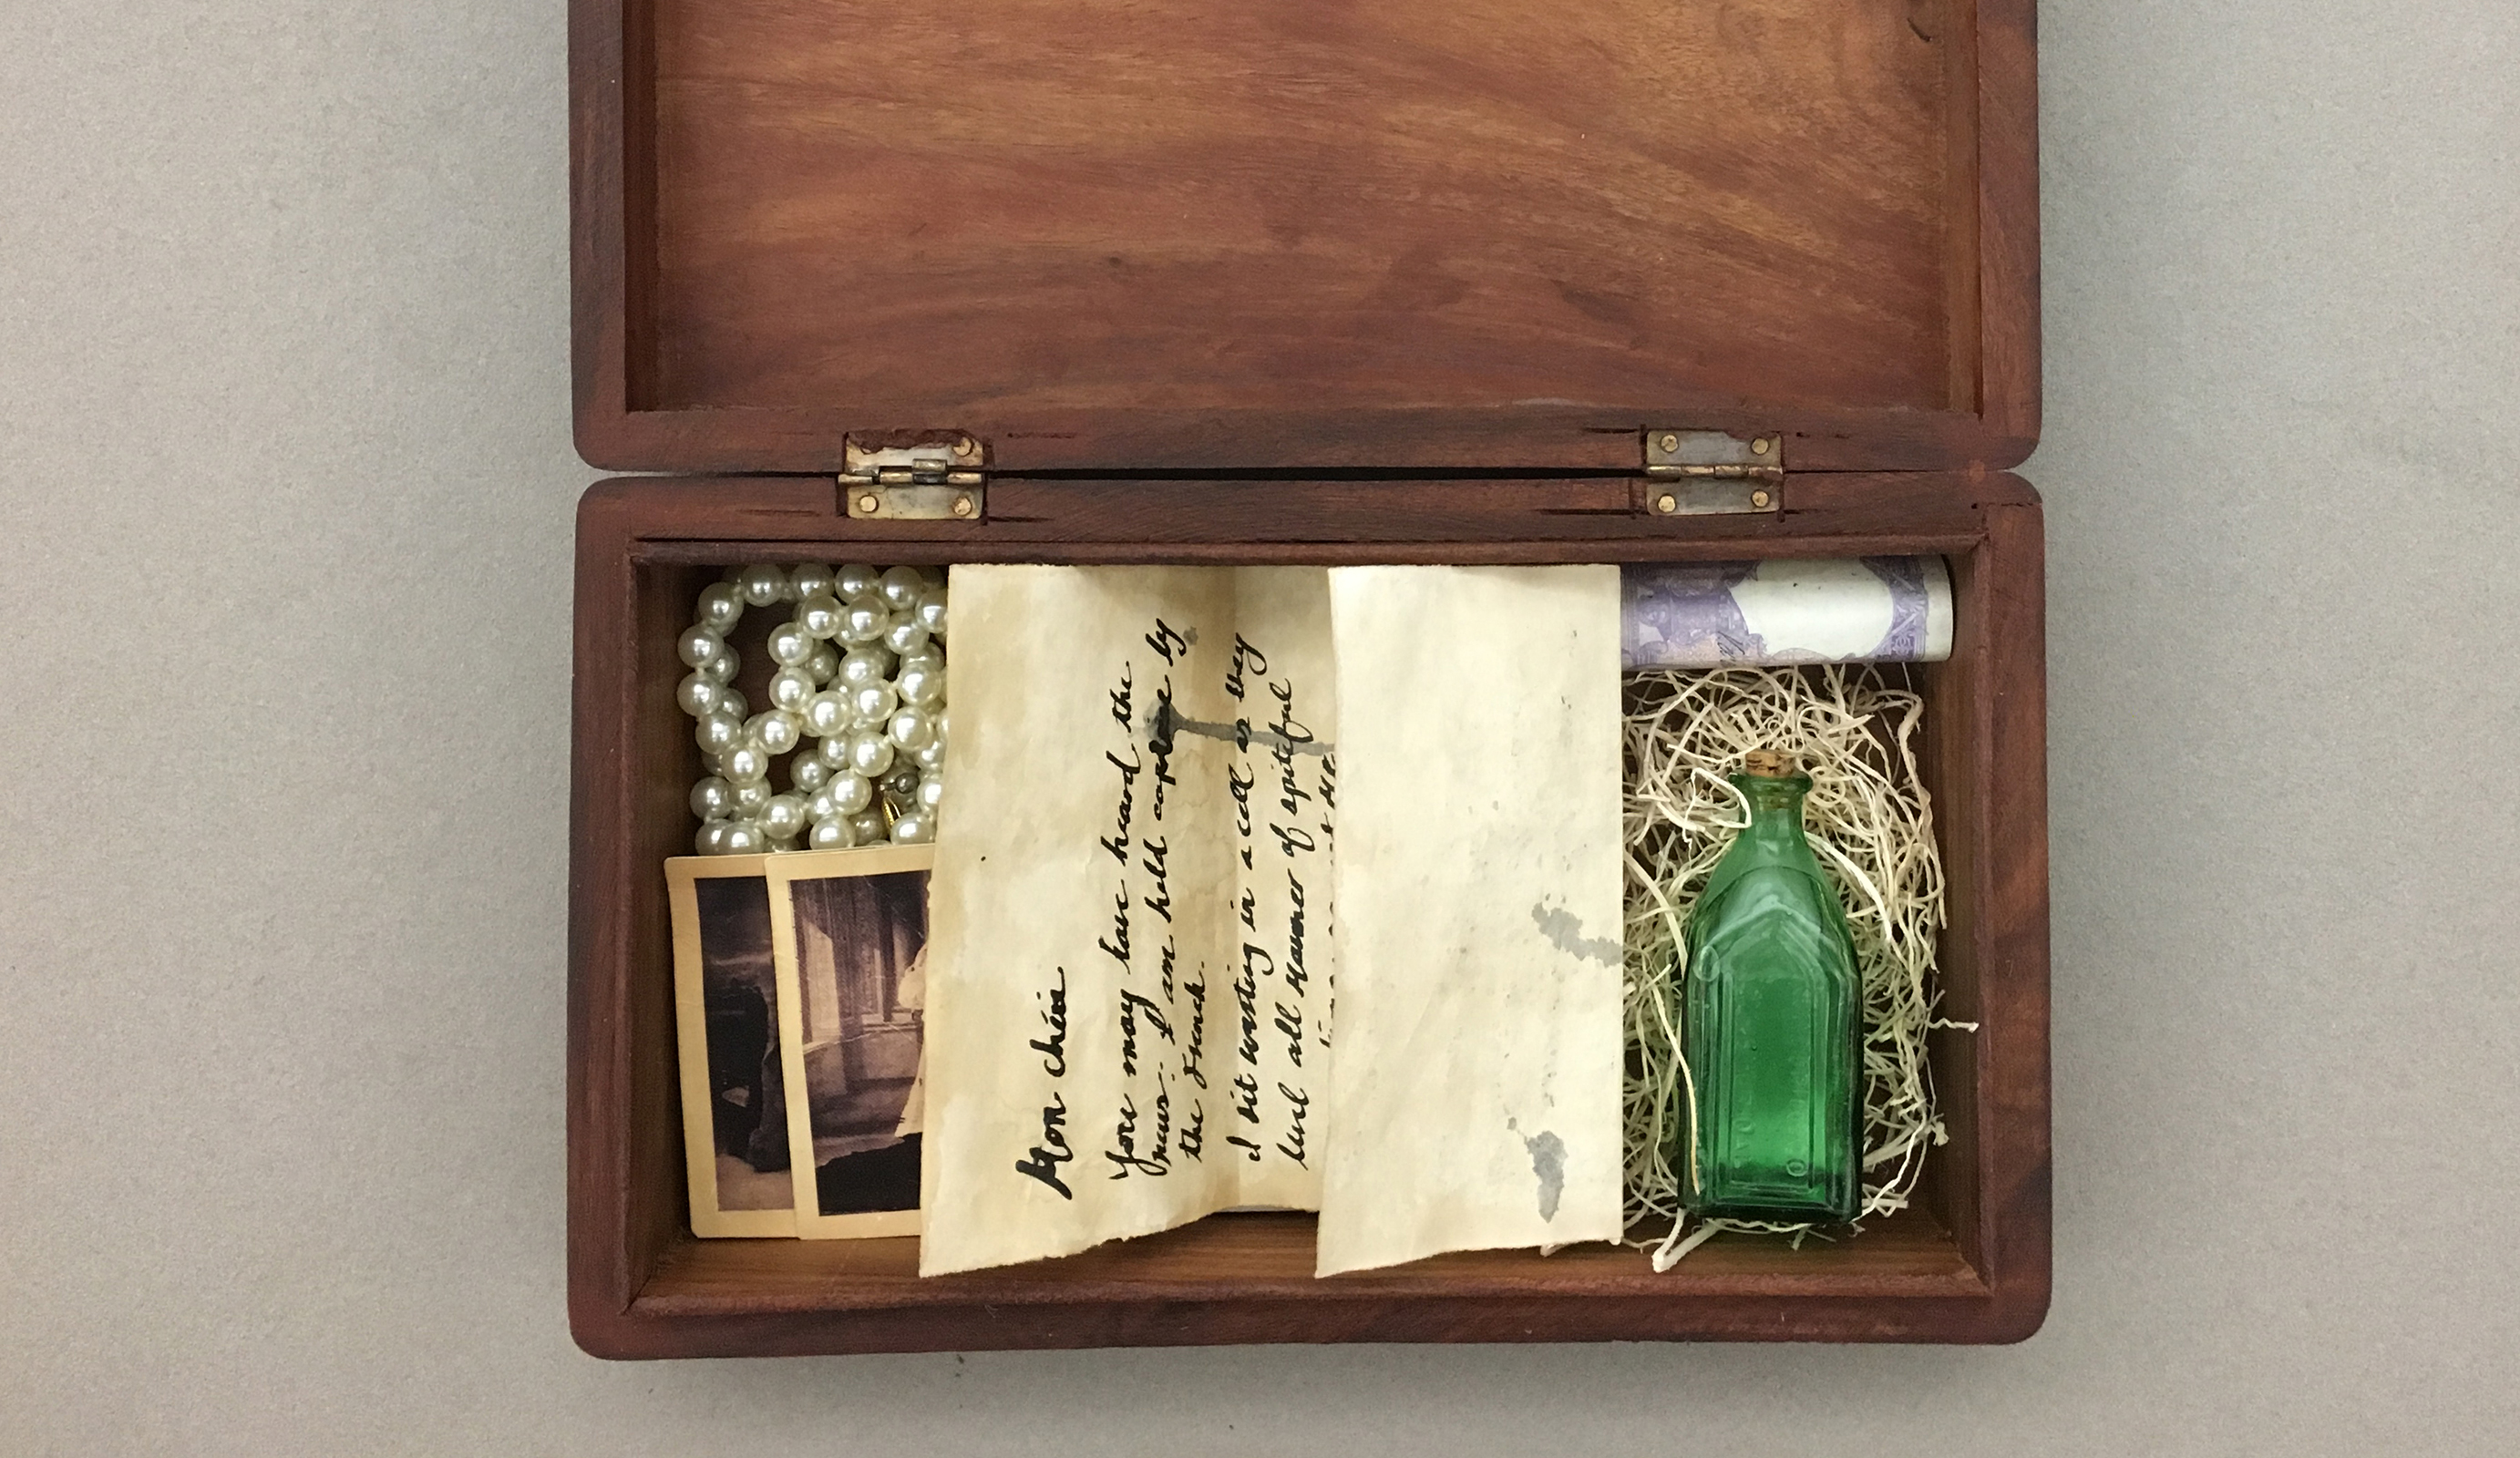 Mon chére
You may have heard the
news. I am held captive by
the French.
I sit wasting in a cell as they
level all manner of spiteful